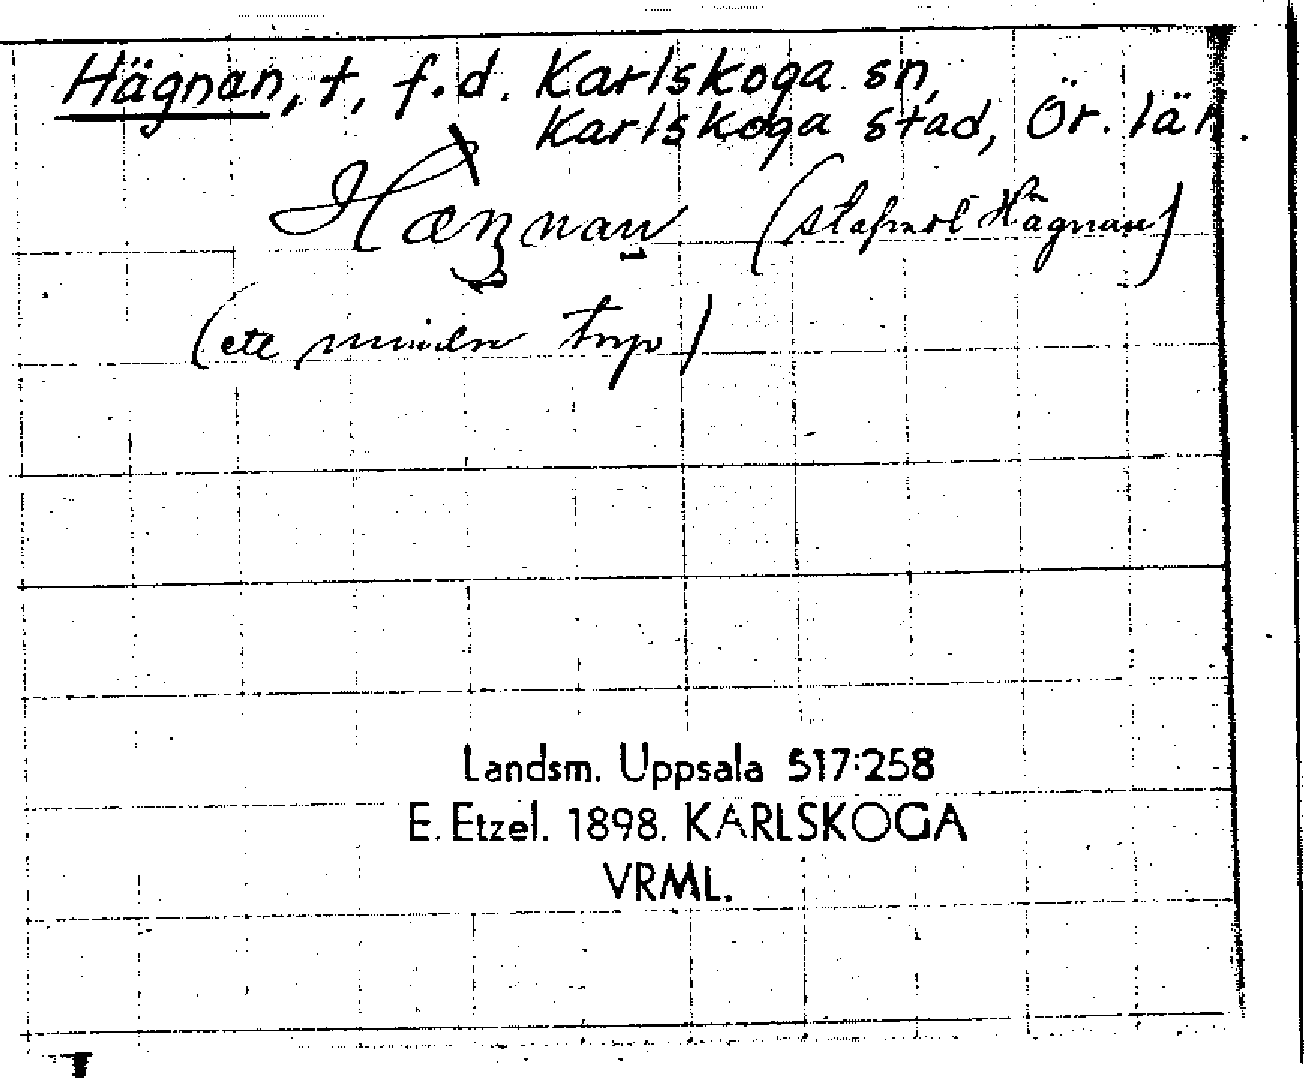 Hägnan, t, f.d. Karlskoga sn,
Karlskoga stad, Ör. län.
Hægnan (stafvest Hägnan)
(ett mindre torp)
Landsm. Uppsala 517:258
E. Etzel. 1898. KARLSKOGA
VRML.